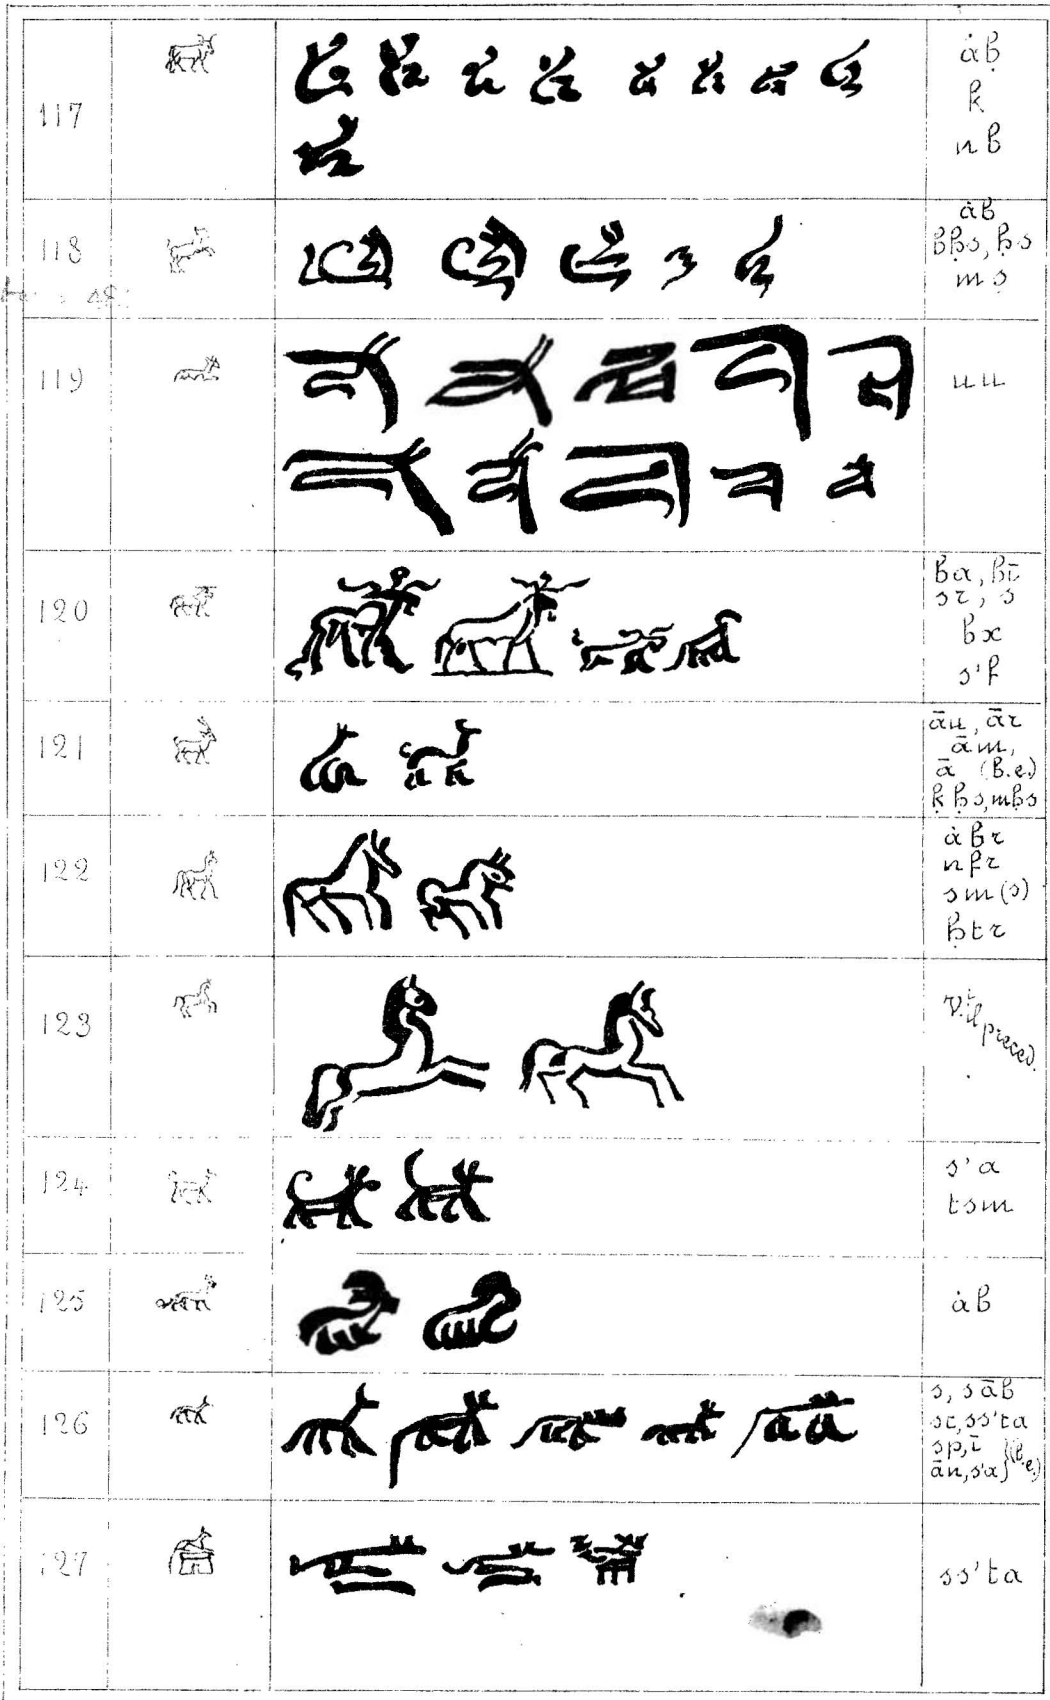 117
ȧḅ
k
nb
118
ȧb
bḥs, ḥs
mṣ
119
uu
120
ba, bī
sr, s
bx
s'f
121
āu, ār
ām,
ā (b.e.)
ḳḥs, mḥs
122
ȧbr
nfr
sm(s)
ḥtr
123
V. il preced.
124
s'a
tsm
125
ȧb
126
s, sāb
st, ss'ta
sp, ī
ān, s'a} (b.e.)
127
ss'ta